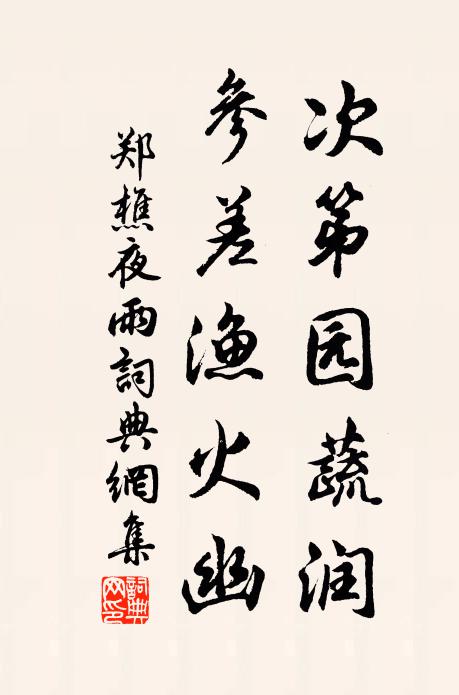 次第园蔬润
參差漁火幽
郑樵夜雨詞典網集
詞典網印